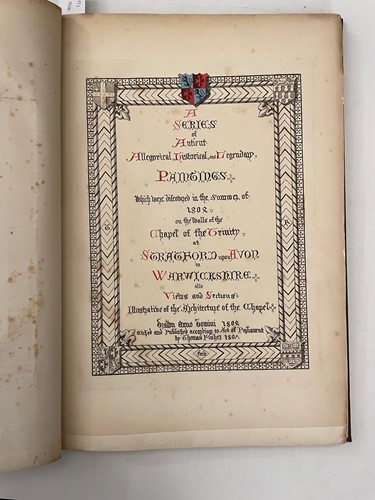 A
Series
of
Antient
Allegorical, Historical, and Legendary
Paintings
Which were discovered in the Summer of
on the Walls of the
Chapel of the Trinity
at
Stratford upon Avon
in
Warwickshire
also
Views and Sections
Illustrative of the Architecture of the Chapel
and Published according to Act of Parliament
by Thomas Fisher